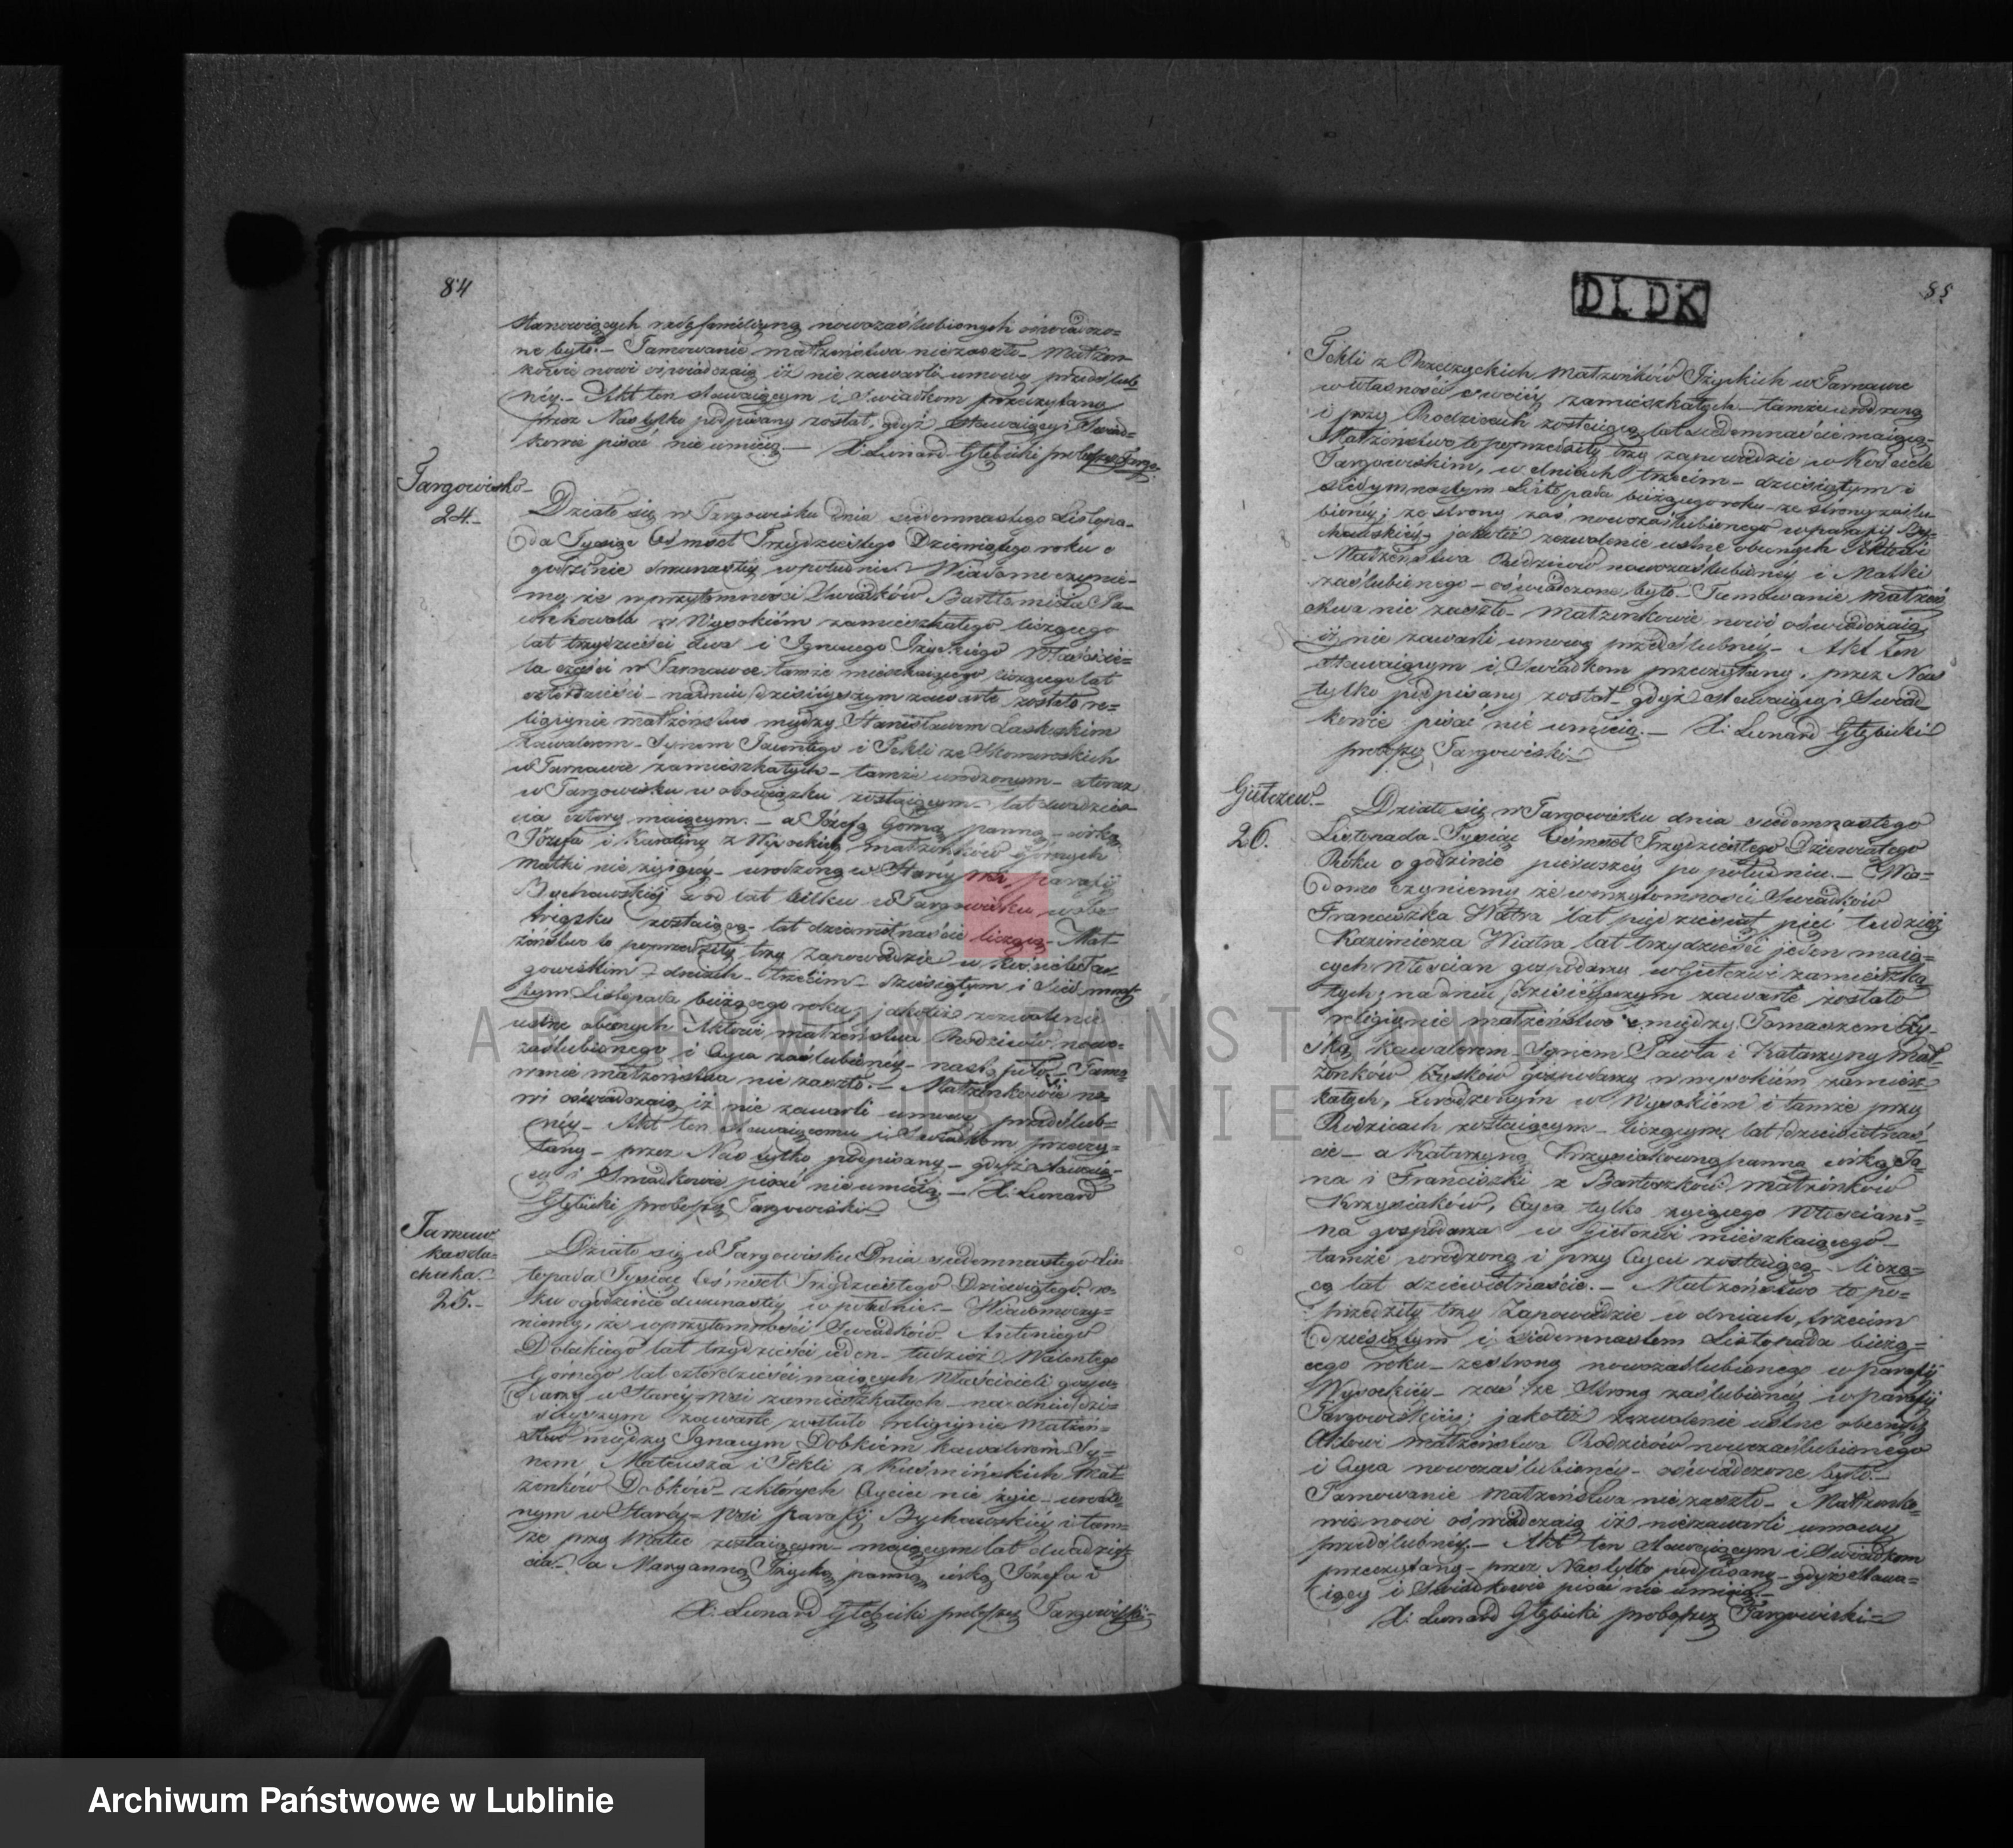 84
stanowiących radę familijną nowozaślubionych oświadczo=
ne było.– Tamowanie małżeństwa nie zaszło– Małżon=
kowie nowi oświadczaią iż nie zawarli umowy przedślub=
néy.– Akt ten stawaiącym i Swiadkom przeczytany
przez Nas tylko podpisany został, gdyż stawaiący i Swiad=
kowie pisać nie umieią.– X: Leonard Głębicki
Targowisko–
24.–
Działo się w Targowisku dnia siedemnastego Listopa=
da Tysiąc Ośmset Trzydziestego Dziewiątego roku o
godzinie dwunastéy w południe Wiadomo czynie=
my że w przytomności Swiadków Bartłomieia
w Wysokiém zamieszkałego liczącego
lat trzydzieści dwa i Ignacego Tżyckiego Właścicie=
la części w Tarnawce, tamże mieszkaiącego, liczącego lat
czterdzieści– na dniu dzisieyszym zawarte zostało re=
ligiynie małżeństwo między Stanisławem Laskoskim
kawalerem– Synem i Tekli ze Skomoroskich
w Tarnawie zamieszkałych– tamże urodzonym– a teraz
w Targowisku w obowiązku zostaiącym– lat dwadzieś=
cia cztery maiącym.– a Józefą Gorną panną– córką
Józefa i Karoliny z Wysockich małżonków Górnych
matki nie żyiącéy– urodzoną w Staréy wsi, parafij
Bychawskiéy a od lat kilku w Targowisku w obo=
wiązku zostaiącą– lat dziewiętnaście liczącą– Mał=
żeństwo to poprzedziły trzy zapowiedzie w Kościele Tar=
gowiskim w dniach– trzecim– dziesiątym i siedmnas=
tym Listopada bieżącego roku, jakoteż zezwolenie
ustne obecnych Aktowi małżeństwa Rodziców nowo=
zaślubionego i Oyca zaślubionéy– nastąpiło– Tamo=
wanie małżeństwa nie zaszło.– Małżonkowie no=
wi oświadczaią iż nie zawarli umowy przedślub=
néy– Akt ten stawaiącemu i Swiadkom przeczy=
tany– przez Nas tylko podpisany– gdyż stawaią=
cy i Swiadkowie pisać nie umieią.– X: Leonard
Głębicki proboszcz Targowiski–
Tarnaw=
ka szla=
checka.–
25.–
Działo się w Targowisku Dnia siedemnastego Lis=
topada Tysiąc Ośmset Trzydziestego Dziewiątego ro=
ku o godzinie dwunastéy w południe.– Wiadomo czy=
niemy, że w przytomności Swiadków Antoniego
lat trzydzieści ieden– tudzież Walentego
Górnego lat czterdzieści maiących Właścicieli gospo=
darzy w Staréy-wsi zamieszkałych– na dniu dzi=
sieyszym zawarte zostało religiynie małżeń=
stwo między Ignacym Dobkiém kawalerem Sy=
nem Mateusza i Tekli z Kuśmińskich Mał=
żonków Dobków– z których Oyciec nie żyie– urodzo=
nym w Staréy-wsi parafij Bychawskiéy i tam=
że przy Matce zostaiącym– maiącym lat dwadzieś=
cia– a Maryanną Tżycką panną, córką Józefa i
X: Leonard Głębicki proboszcz Targowiski–
DLDK
85
Tekli z małżonków Tżyckich w Tarnawce
w własności swoiéy zamieszkałych– tamże urodzoną
i przy Rodzicach zostaiącą lat siedemnaście maiącą–
Małżeństwo to poprzedziły trzy zapowiedzie w Kościele
Targowiskim, w dniach trzecim– dziesiątym i
siedymnastym Listopada bieżącego roku– ze strony zaślu=
bionéy; ze strony zaś nowozaślubionego w parafij By=
chawskiéy, jakoteż zezwolenie ustne obecnych Aktowi
Małżeństwa Rodziców nowozaślubionéy i Matki
zaślubionego– oświadczone było– Tamowanie małżeń=
stwa nie zaszło– Małżonkowie nowi oświadczaią
iż nie zawarli umowy przedślubnéy– Akt ten
stawaiącym i Swiadkom przeczytany, przez Nas
tylko podpisany został– gdyż stawaiący i Swiad=
kowie pisać nie umieią.– X: Leonard Głębicki
proboszcz Targowiski–
Giełczew.–
26.
Działo się w Targowisku dnia siedemnastego
Listopada Tysiąc Ośmset Trzydziestego Dziewiątego
Roku o godzinie pierwszéy po południu.– Wia=
domo czyniemy że w przytomności Swiadków
Franciszka Wiatra lat pięćdziesiąt pięć tudzież
Kazimierza Wiatra lat trzydzieści jeden maią=
cych włościan gospodarzy w Giełczwi zamieszka=
łych, na dniu dzisieyszym zawarte zostało
religiynie małżeństwo między Tomaszem Zy=
ską kawalerem– Synem Pawła i Katarzyny Mał=
żonków Zysków gospodarzy w Wysokiém zamiesz=
kałych, urodzonym w Wysokiém i tamże przy
Rodzicach zostaiącym– liczącym lat dziewiętnaś=
cie– a Katarzyną Krzysiakowną panną córką Ja=
na i Franciszki z Bartoszków małżonków
Krzysiaków, Oyca tylko żyiącego Włościani=
na gospodarza w Giełczwi mieszkaiącego–
tamże urodzoną i przy Oycu zostaiącą– liczą=
cą lat dziewiętnaście.– Małżeństwo to po=
przedziły trzy Zapowiedzie w dniach, trzecim
dziesiątym i siedemnastem Listopada bieżą=
cego roku– ze strony nowozaślubionego w parafij
Wysockiéy– zaś ze strony zaślubionéy w parafij
Targowiskiéy; jakoteż zezwolenie ustne obecnych
Aktowi małżeństwa Rodziców nowozaślubionego
i Oyca nowozaślubionéy– oświadczone było.–
Tamowanie małżeństwa nie zaszło– Małżonko=
wie nowi oświadczaią iż nie zawarli umowy
przedślubnéy– Akt ten stawaiącym i Swiadkom
przeczytany– przez Nas tylko podpisany– gdyż stawa=
iący i Swiadkowie pisać nie umieią.–
X: Leonard Głębicki proboszcz Targowiski–
ARCHIWUM PAŃSTWOWE
W LUBLINIE
Archiwum Państwowe w Lublinie